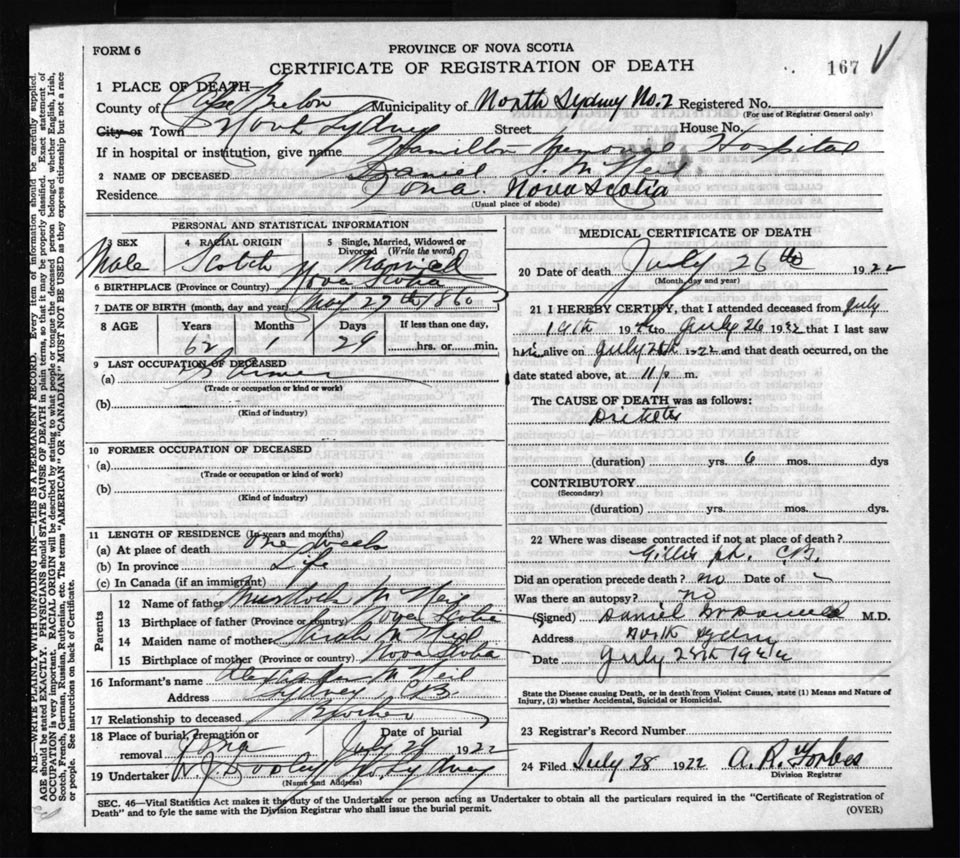 FORM 6
PROVINCE OF NOVA SCOTIA
CERTIFICATE OF REGISTRATION OF DEATH
167 √
1 PLACE OF DEATH
County of Cape Breton Municipality of North Sydney No. 2 Registered No.
(For use of Registrar General only)
City or Town North Sydney Street House No.
If in hospital or institution, give name Hamilton Memorial Hospital
2 NAME OF DECEASED Daniel J. McNeil
Residence Iona. Nova Scotia
(Usual place of abode)
PERSONAL AND STATISTICAL INFORMATION
3 SEX 4 RACIAL ORIGIN 5 Single, Married, Widowed or Divorced (Write the word)
Male Scotch Married
6 BIRTHPLACE (Province or Country) Nova Scotia
7 DATE OF BIRTH (month, day and year) May 27th 1860
8 AGE Years Months Days If less than one day,
62 1 29 hrs. or min.
9 LAST OCCUPATION OF DECEASED
(a) Farmer
(Trade or occupation or kind of work)
(b)
(Kind of industry)
10 FORMER OCCUPATION OF DECEASED
(a)
(Trade or occupation or kind of work)
(b)
(Kind of industry)
11 LENGTH OF RESIDENCE (In years and months)
(a) At place of death One week
(b) In province Life
(c) In Canada (if an immigrant)
Parents
12 Name of father Murdoch McNeil
13 Birthplace of father (Province or country) Nova Scotia
14 Maiden name of mother Sarah McNeil
15 Birthplace of mother (Province or country) Nova Scotia
16 Informant's name Alexander McNeil
Address Sydney C.B.
17 Relationship to deceased Brother
18 Place of burial, cremation or removal Iona Date of burial July 28 1922
19 Undertaker No. Sydney
(Name and Address)
MEDICAL CERTIFICATE OF DEATH
20 Date of death July 26th 1922
(Month, day and year)
21 I HEREBY CERTIFY, that I attended deceased from July
19th 1922 to July 26 1922 that I last saw
him alive on July 26th 1922 and that death occurred, on the
date stated above, at 11 p m.
The CAUSE OF DEATH was as follows:
(duration) yrs. 6 mos. dys
CONTRIBUTORY
(Secondary)
(duration) yrs. mos. dys.
22 Where was disease contracted if not at place of death?
Gillis Pt. C.B.
Did an operation precede death? No Date of
Was there an autopsy? No
(Signed) Daniel McDonald M.D.
Address North Sydney
Date July 28th 1922
State the Disease causing Death, or in death from Violent Causes, state (1) Means and Nature of
Injury, (2) whether Accidental, Suicidal or Homicidal.
23 Registrar's Record Number
24 Filed July 28 1922 A. R. Forbes
Division Registrar
SEC. 46—Vital Statistics Act makes it the duty of the Undertaker or person acting as Undertaker to obtain all the particulars required in the "Certificate of Registration of
Death" and to fyle the same with the Division Registrar who shall issue the burial permit.
(OVER)
N.B.—WRITE PLAINLY WITH UNFADING INK—THIS IS A PERMANENT RECORD. Every item of information should be carefully supplied.
AGE should be stated EXACTLY. PHYSICIANS should STATE CAUSE OF DEATH in plain terms, so that it may be properly classified. Exact statement of
OCCUPATION is very important. RACIAL ORIGIN will be described by stating to what people or tongue the deceased person belonged whether English, Irish,
Scotch, French, German, Russian, Ruthenian, etc. The terms "AMERICAN" OR "CANADIAN" MUST NOT BE USED as they express citizenship but not a race
or people. See instructions on back of Certificate.